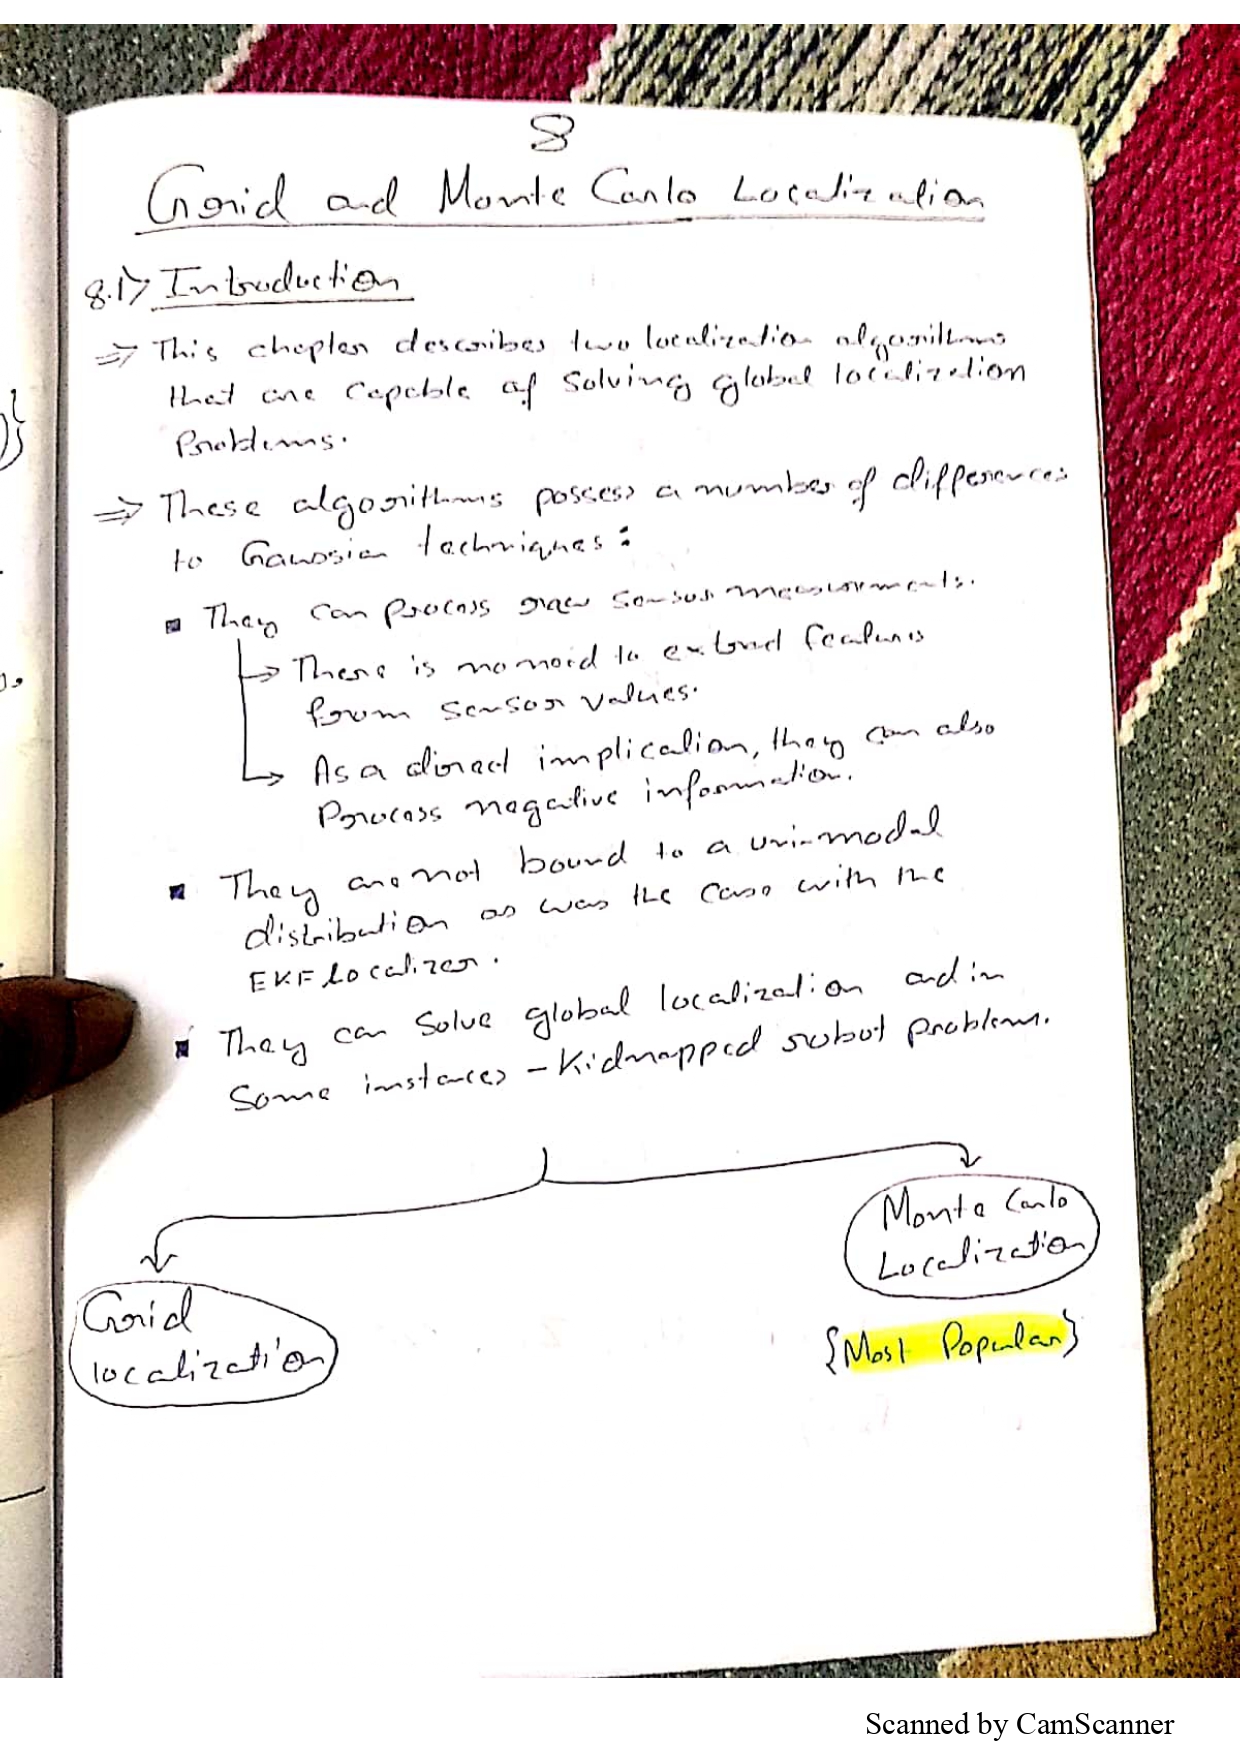 8
Grid and Monte Carlo Localization
8.1) Introduction
⇒ This chapter describes two localization algorithms
that are capable of solving global localization
Problems.
⇒ These algorithms possess a number of differences
to Gaussian techniques:
▪ They can process raw sensor measurements.
→ There is no need to extract features
from sensor values.
→ As a direct implication, they can also
Process negative information.
▪ They are not bound to a uni-modal
distribution as was the case with the
EKF Localizer.
▪ They can solve global localization and in
Some instances - Kidnapped robot problem.
Monte Carlo
Localization
Grid
localization
{Most Popular}
Scanned by CamScanner